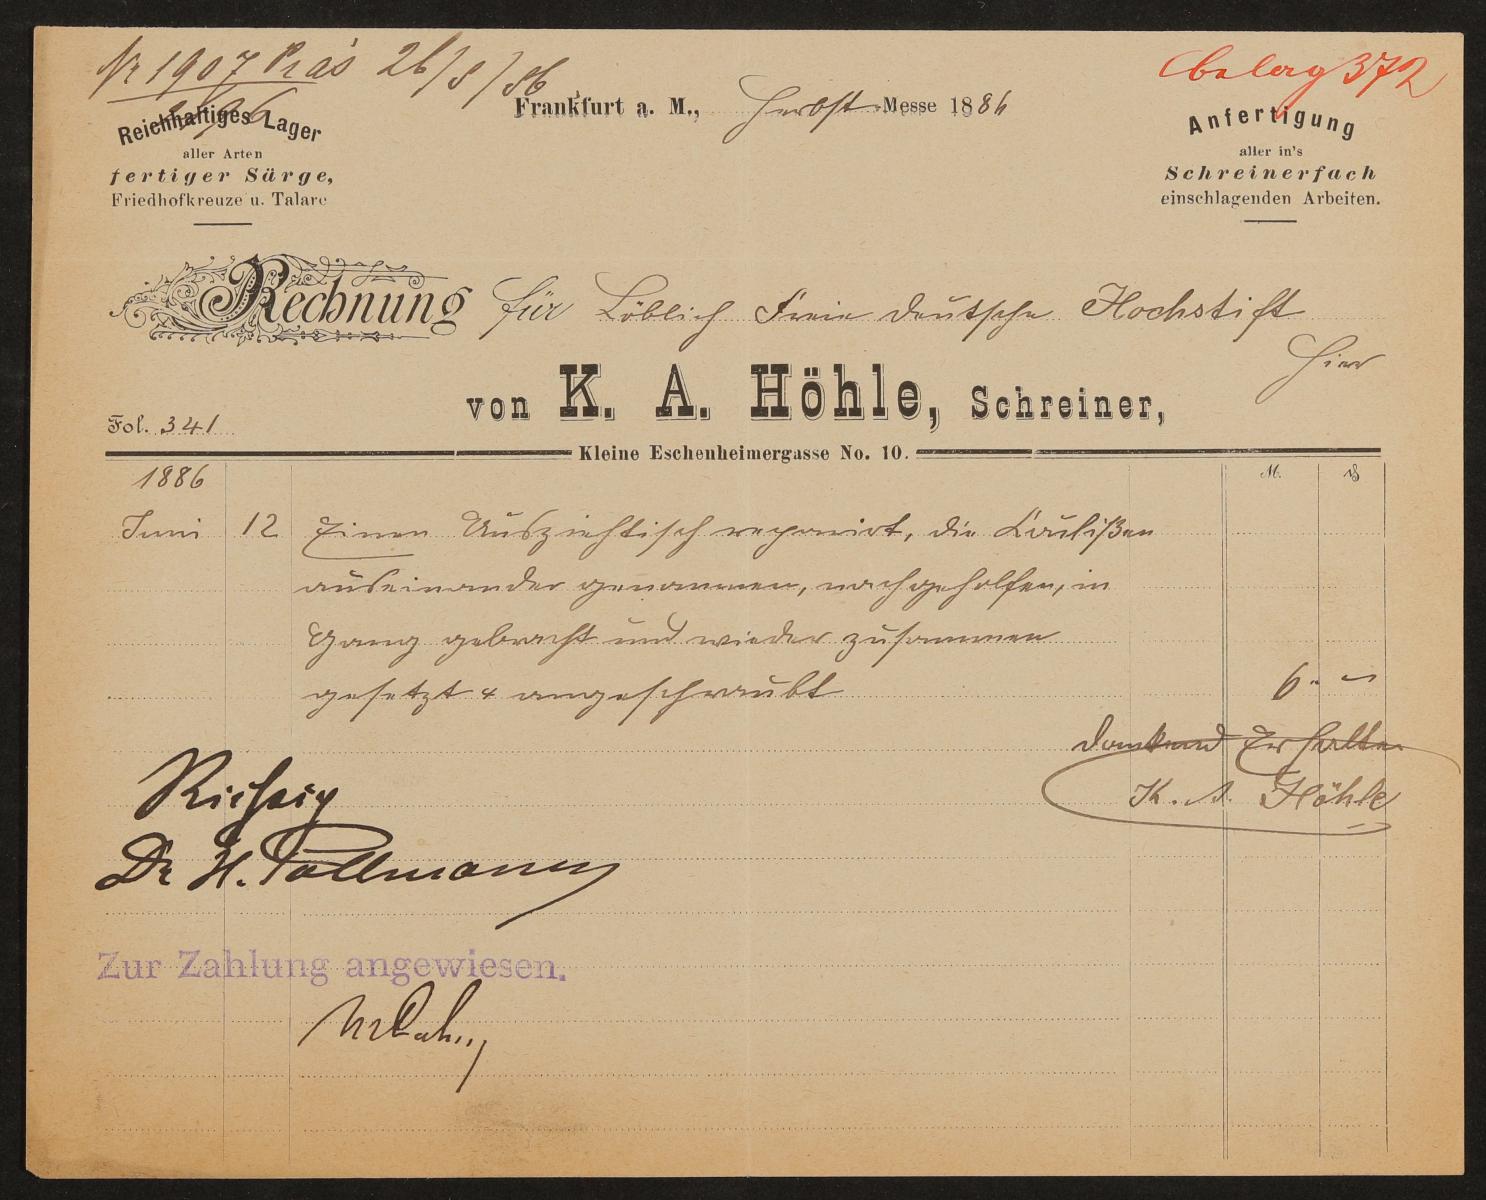 Nr 1907 Präs 26/8/86
Beleg 372
Reichhaltiges Lager
aller Arten
fertiger Särge,
Friedhofkreuze u. Talare
Frankfurt a. M., Herbst-Messe 1886
Anfertigung
aller in's
Schreinerfach
einschlagenden Arbeiten.
Rechnung für Löblich Freie deutsche Hochstift
Hier
von K. A. Höhle, Schreiner,
Fol. 341
Kleine Eschenheimergasse No. 10.
1886
M.
Juni 12 Einen Ausziehtisch reparirt, die Coulißen
auseinander genommen, nachgeholfen, in
Gang gebracht und wieder zusammen
gesetzt & angeschraubt 6 " —
dankend Erhalten
K. A. Höhle
Richtig
Dr H. Pallmann
Zur Zahlung angewiesen.